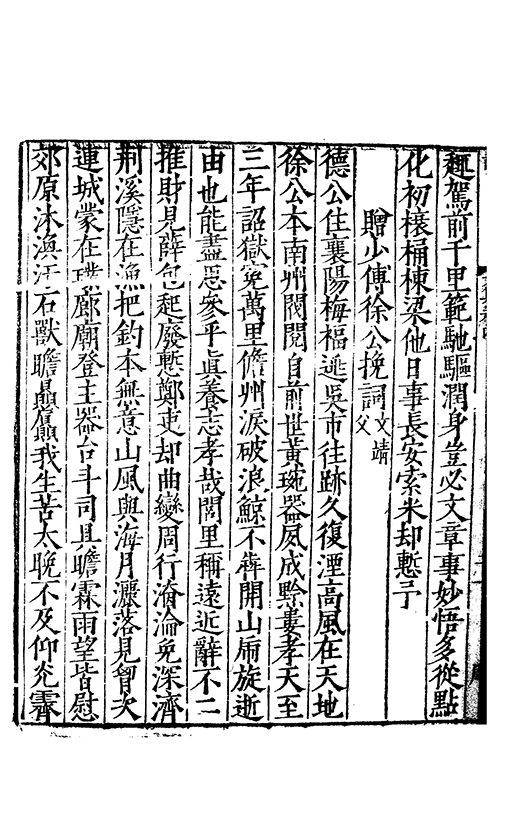 趣駕前千里範馳驅潤身豈必文章事妙悟多從點
化初榱桷棟梁他日事長安索米却慙予
贈少傅徐公挽詞文靖父
德公住襄陽梅福逃吳市往跡久復湮高風在天地
徐公本南州閥閱自前世黃琬器夙成黔婁孝天至
三年詔獄寃萬里儋州淚破浪鯨不犇開山虎旋逝
由也能盡忠參乎眞養志孝哉閭里稱遠近辭不二
推財見薛包起廢慙鄭吏却曲變周行濬淪免深濟
荆溪隱在漁把釣本無意山風與海月灑落見胷次
連城蒙在璞廊廟登主器台斗司具瞻霖雨望皆慰
郊原沐渙汗石獸瞻贔屭我生苦太晚不及仰光霽